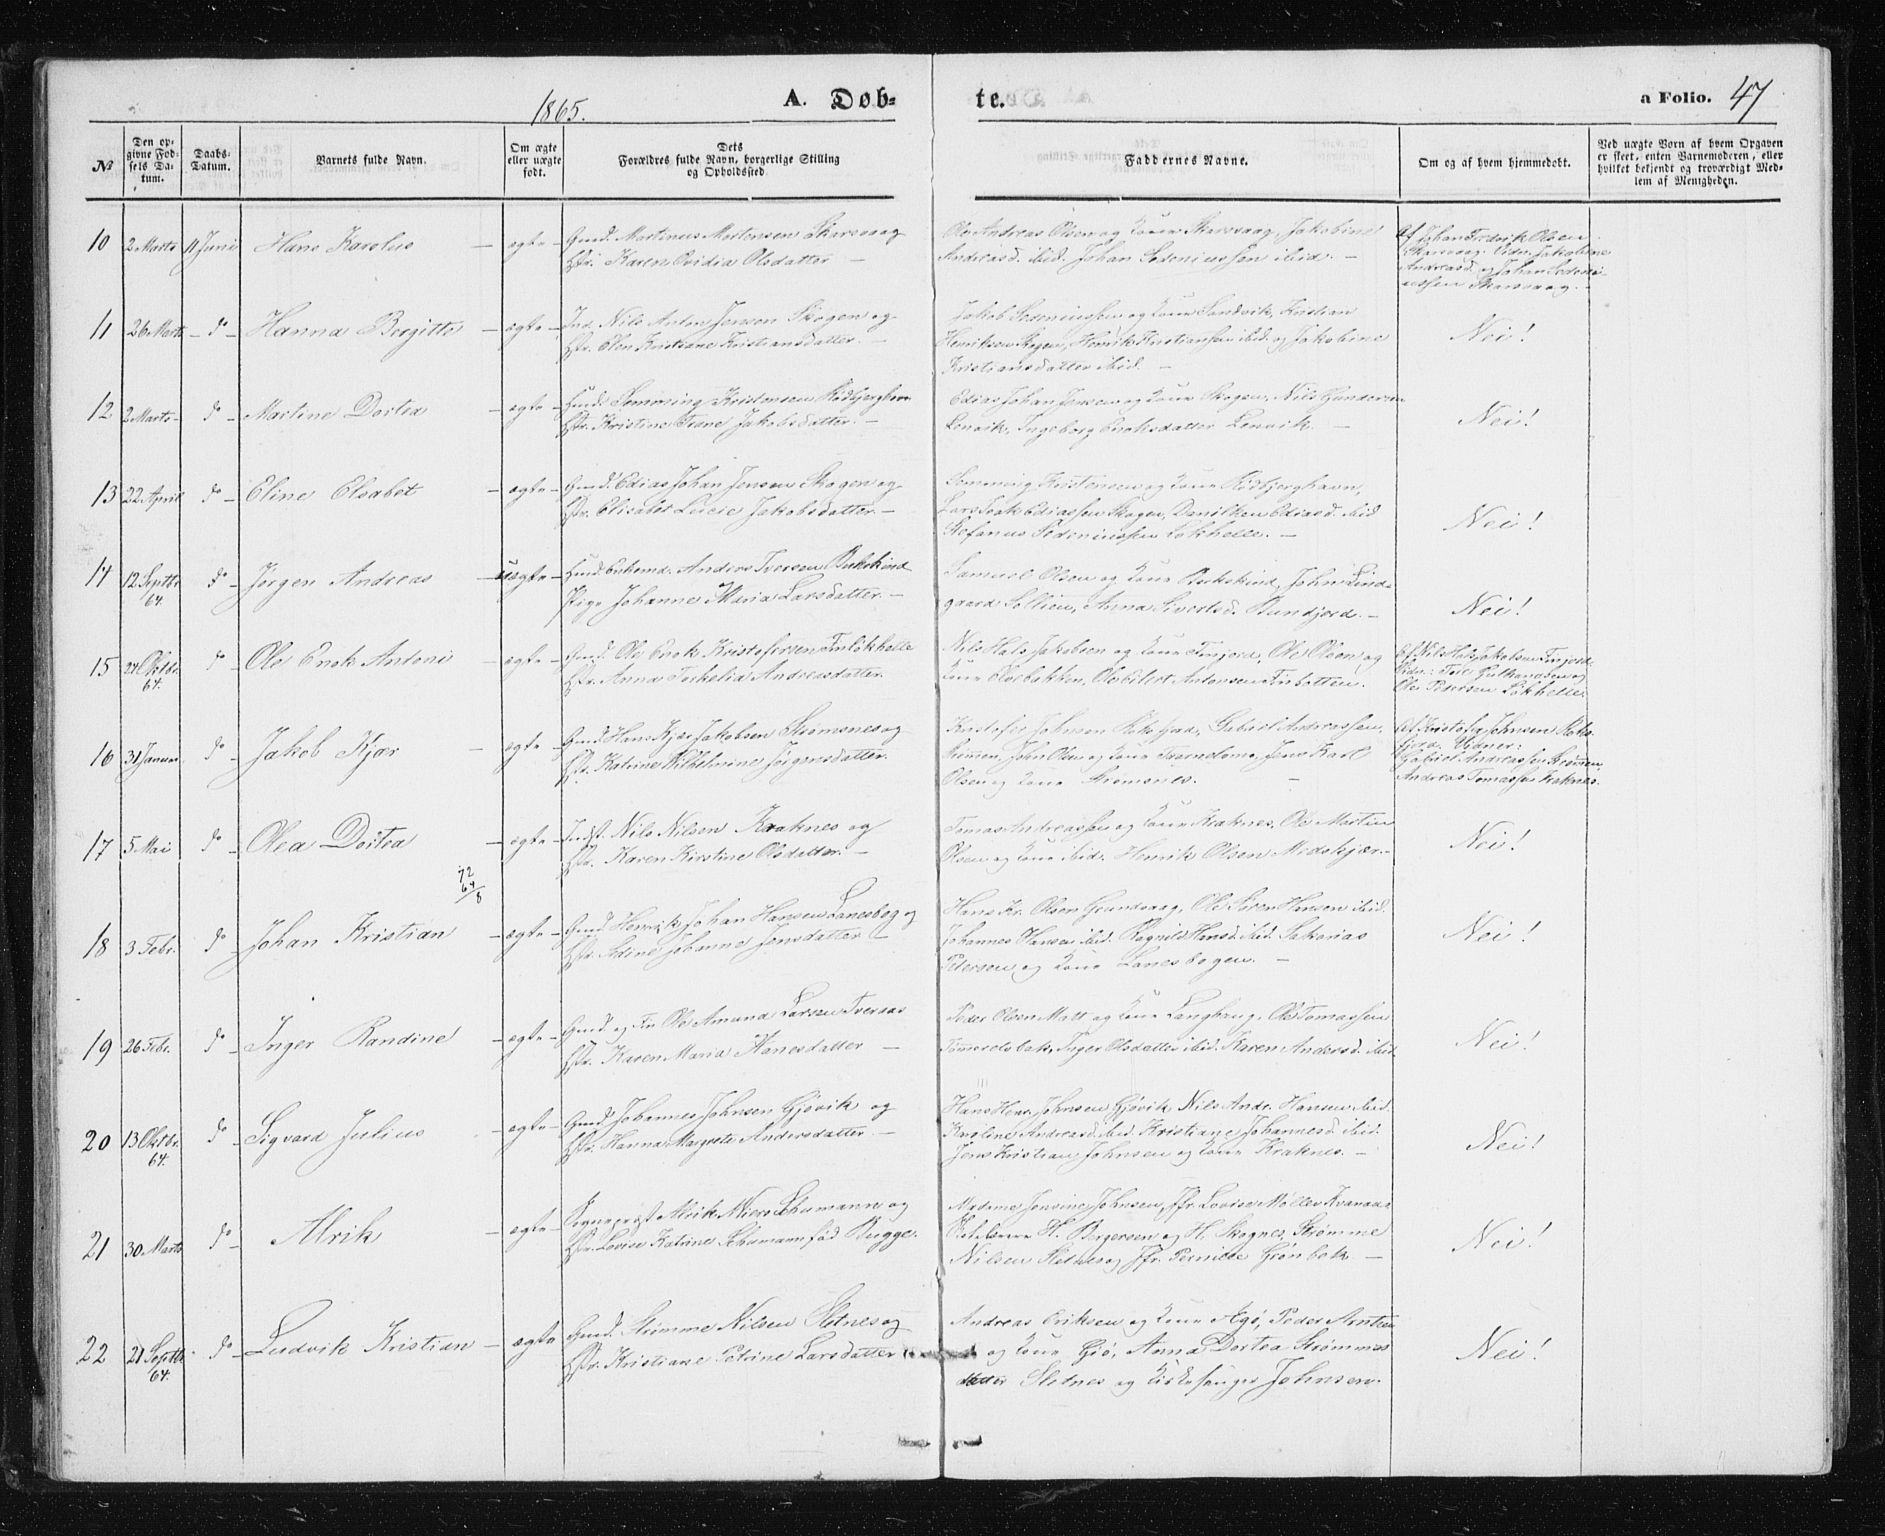 1865.
A. Døb-
te.
a Folio. 47
№
Den op-
givne Fød-
sels Da-
tum.
Daabs-
Datum.
Barnets fulde Navn.
Om ægte
eller uægte
født.
Dets
Forældres fulde Navn, borgerlige Stilling
og Opholdssted.
Faddernes Navne.
Om og af hvem hjemmedøbt.
Ved uægte Børn af hvem Opgaven
er skeet, enten Barnemoderen, eller
hvilket bekjendt og troværdigt Med-
lem af Menigheden.
10 2 Marts 11 Juni Hans Karolus — ægte — Gmd. Martinus Mortensen Skarvaag
Hstr. Karen Ovidia Olsdatter —
Ole Andreas Olsen og Kone Skarsvaag, Jakobine
Andreasd. ibid. Johan Sedeniussen ibid. —
Af Johan Fredrik Olsen
Skarsvaag. Vidn. Jakobine
Andreasd. og Johan Sedeni-
ussen Skarsvaag. —
11 26 Marts — do — Hanna Bergitte — ægte — Ind. Nils Anton Jensen Skogen og
Hstr. Elen Kristiane Kristiansdatter. —
Jakob Sedeniussen og Kone Sandvik, Kristian
Henriksen Skogen, Henrik Kristiansen ibid. og Jakobine
Kristiansdatter ibid. —
Nei!
12 2 Marts — do — Martine Dortea — ægte — Huusmd. Kristensen Rødbjerghavn
Hstr. Kristine Trane Jakobsdatter. —
Edias Johan Jensen og Kone Skogen, Nils Gundersen
Lenvik, Ingeborg Enoksdatter Lenvik. —
Nei!
13 22 April do — Eline Elsabet — ægte — Gmd. Edias Johan Jensen Skogen og
Hstr. Elisabet Lucie Jakobsdatter. —
Kristensen og Kone Rødbjerghavn,
Lars Isak Ediassen Skogen, Ediasd. ibid
Stefanus Sedeniussen Løkhelle. —
Nei!
14 12 Septbr.
64. do — Jørgen Andreas — uægte — Enkemd. Anders Iversen
Pige Johanne Maria Larsdatter. —
Samuel Olsen og Kone John Lind-
gaard Anna Sivertsd. —
Nei!
15 24 Oktbr.
64. do — Ole Enok Antoni — ægte — Gmd. Ole Enok Kristofersen Finløkhelle
Hstr. Anna Torkelia Andreasdatter.
Nils Hals Jakobsen og Kone Finjord, Ole Olsen og
Kone Olsbakken, Ole Eilert Antonsen Finbotten.
Af Nils Hals Jakobsen Finjord.
Vidn.: og
Ole Pedersen Løkhelle.
16 31 Januar do — Jakob Kjær — ægte — Gmd. Hans Kjær Jakobsen Strømsnes og
Hstr. Katrine Vilhelmine Jörgensdatter. —
Kristofer Johnsen Gabriel Andreassen,
John Olsen og Kone Jens Karl
Olsen og Kone Strømsnes. —
Af Kristofer Johnsen
Vidner:
Gabriel Andreassen
Andreas Tomassen Kraknes.
17 5 Mai do — Olea Dortea — ægte — Indst. Nils Nilsen Kraknes og
Hstr. Karen Kirstine Olsdatter. —
Tomas Andreassen og Kone Kraknes, Ole Martin
Olsen og Kone ibid. Henrik Olsen —
Nei!
72
64
8
18 3 Febr. do — Johan Kristian — ægte — Gmd. Henrik Johan Hansen Lanesbog og
Hstr. Johanne Jensdatter —
Hans Kr. Olsen Grundvaag, Ole Sören Hansen ibid.
Johannes Hansen ibid. Ragnild Hansd. ibid. Sakarias
Petersen og Kone Lanesbogen. —
Nei!
19 26 Febr. do — Inger Randine — ægte — Gmd. og Ole Amund Larsen Tveraas
Hstr. Karen Maria Hanesdatter —
Peder Olsen og Kone Ole Tomassen
Inger Olsdatter ibid. Karen Andersd. ibid.
Nei!
20 13 Oktbr.
64. do — Sigvard Julius — ægte — Gmd. Johannes Johnsen Gjøvik og
Hstr. Hanna Margrete Andersdatter —
Hans Henr. Johnsen Gjøvik, Nils Andr. Hansen ibid.
Karoline Andreasd. ibid. Kristiane Johannesd. ibid.
Jens Kristian Johnsen og Kone Kraknes. —
Nei!
21 30 Marts do — Alrik — ægte — Sognepræst Alrik Schumann og
Hstr. Lovise Katrine Schumann fød Bugge.
Madame Johnsen, Jfr. Lovise Møller
H. Bergersen og H. Skognes, Strømme
Nilsen Sletnes og Jfr. Pernille Grønbek —
Nei!
22 21 Septbr.
64. do — Ludvik Kristian — ægte Gmd. Strømme Nilsen Sletnes og
Hstr. Kristiane Petrine Larsdatter
Andreas Eriksen og Kone Peder
og Kone Anna Dortea Strømmes
datter Sletnes og Kirkesanger Johnsen.
Nei!